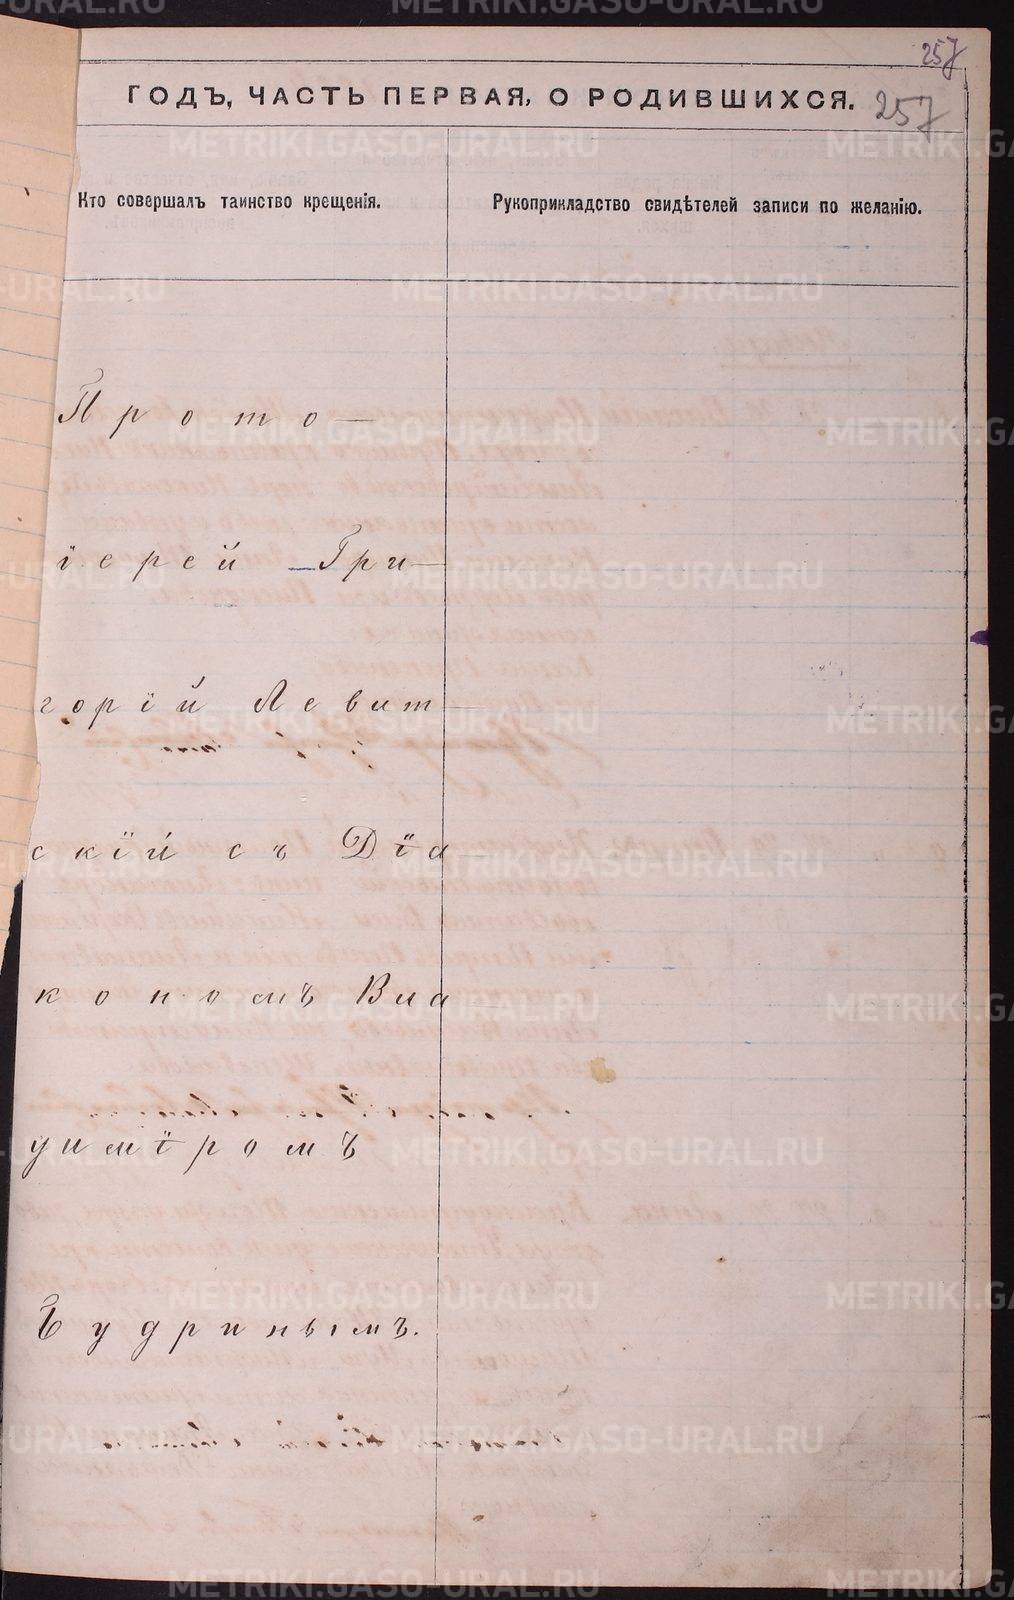 257
ГОДЪ, ЧАСТЬ ПЕРВАЯ, О РОДИВШИХСЯ.
257
Кто совершалъ таинство крещенія.
Рукоприкладство свидѣтелей записи по желанію.
Прото-
іерей Гри-
горій Левит-
скій съ Діа-
кономъ Вла-
димiромъ
Будринымъ.
METRIKI.GASO-URAL.RU